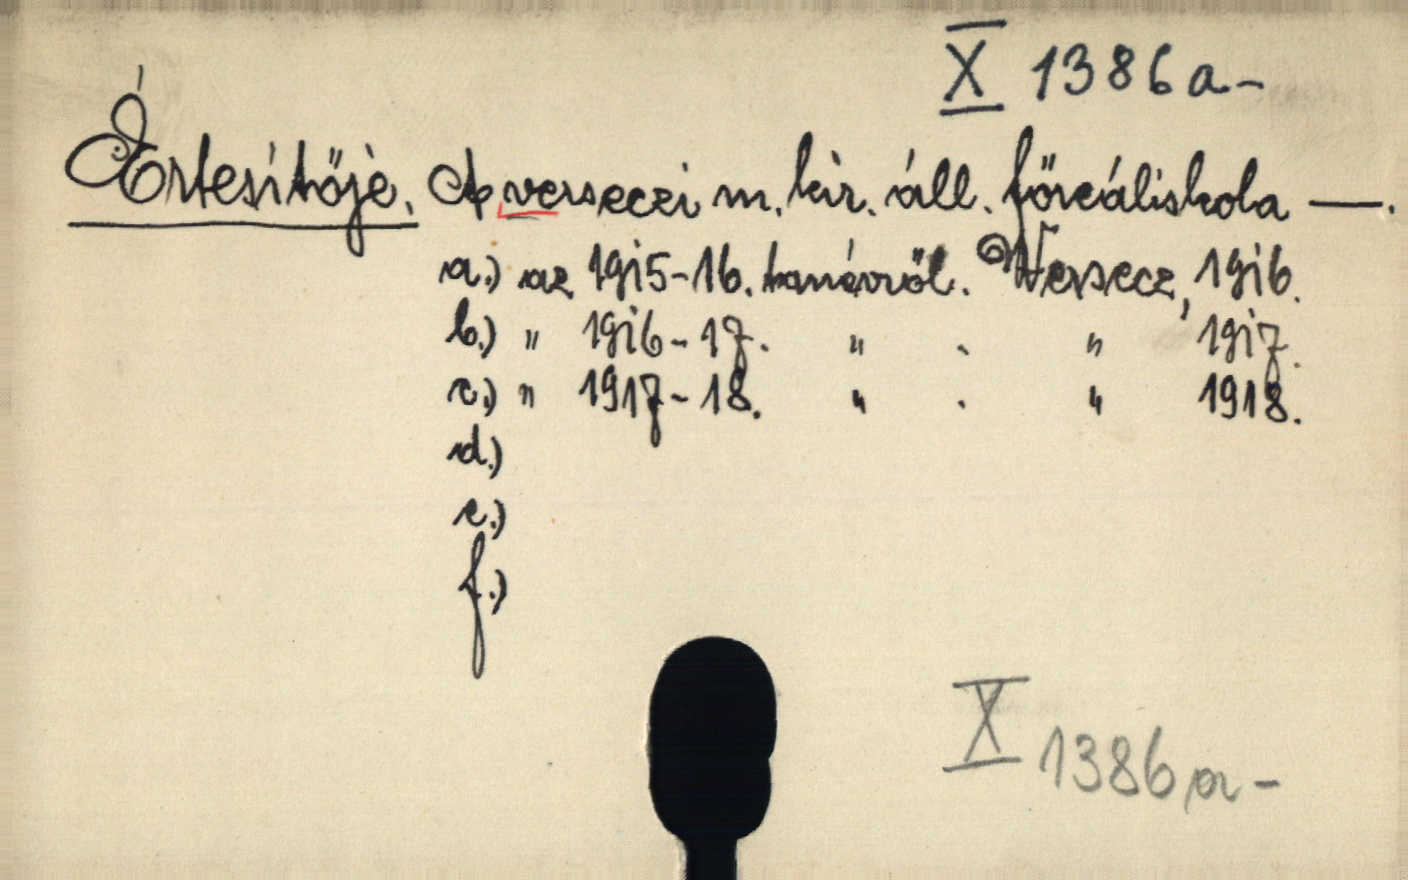 X 1386 a-
Értesítője. A verseczi m. kir. áll. főreáliskola —.
a.) az 1915-16. tanévről. Versecz, 1916.
b.) " 1916-17. " . " 1917.
c.) " 1917-18. " . " 1918.
d.)
e.)
f.)
X 1386 a-